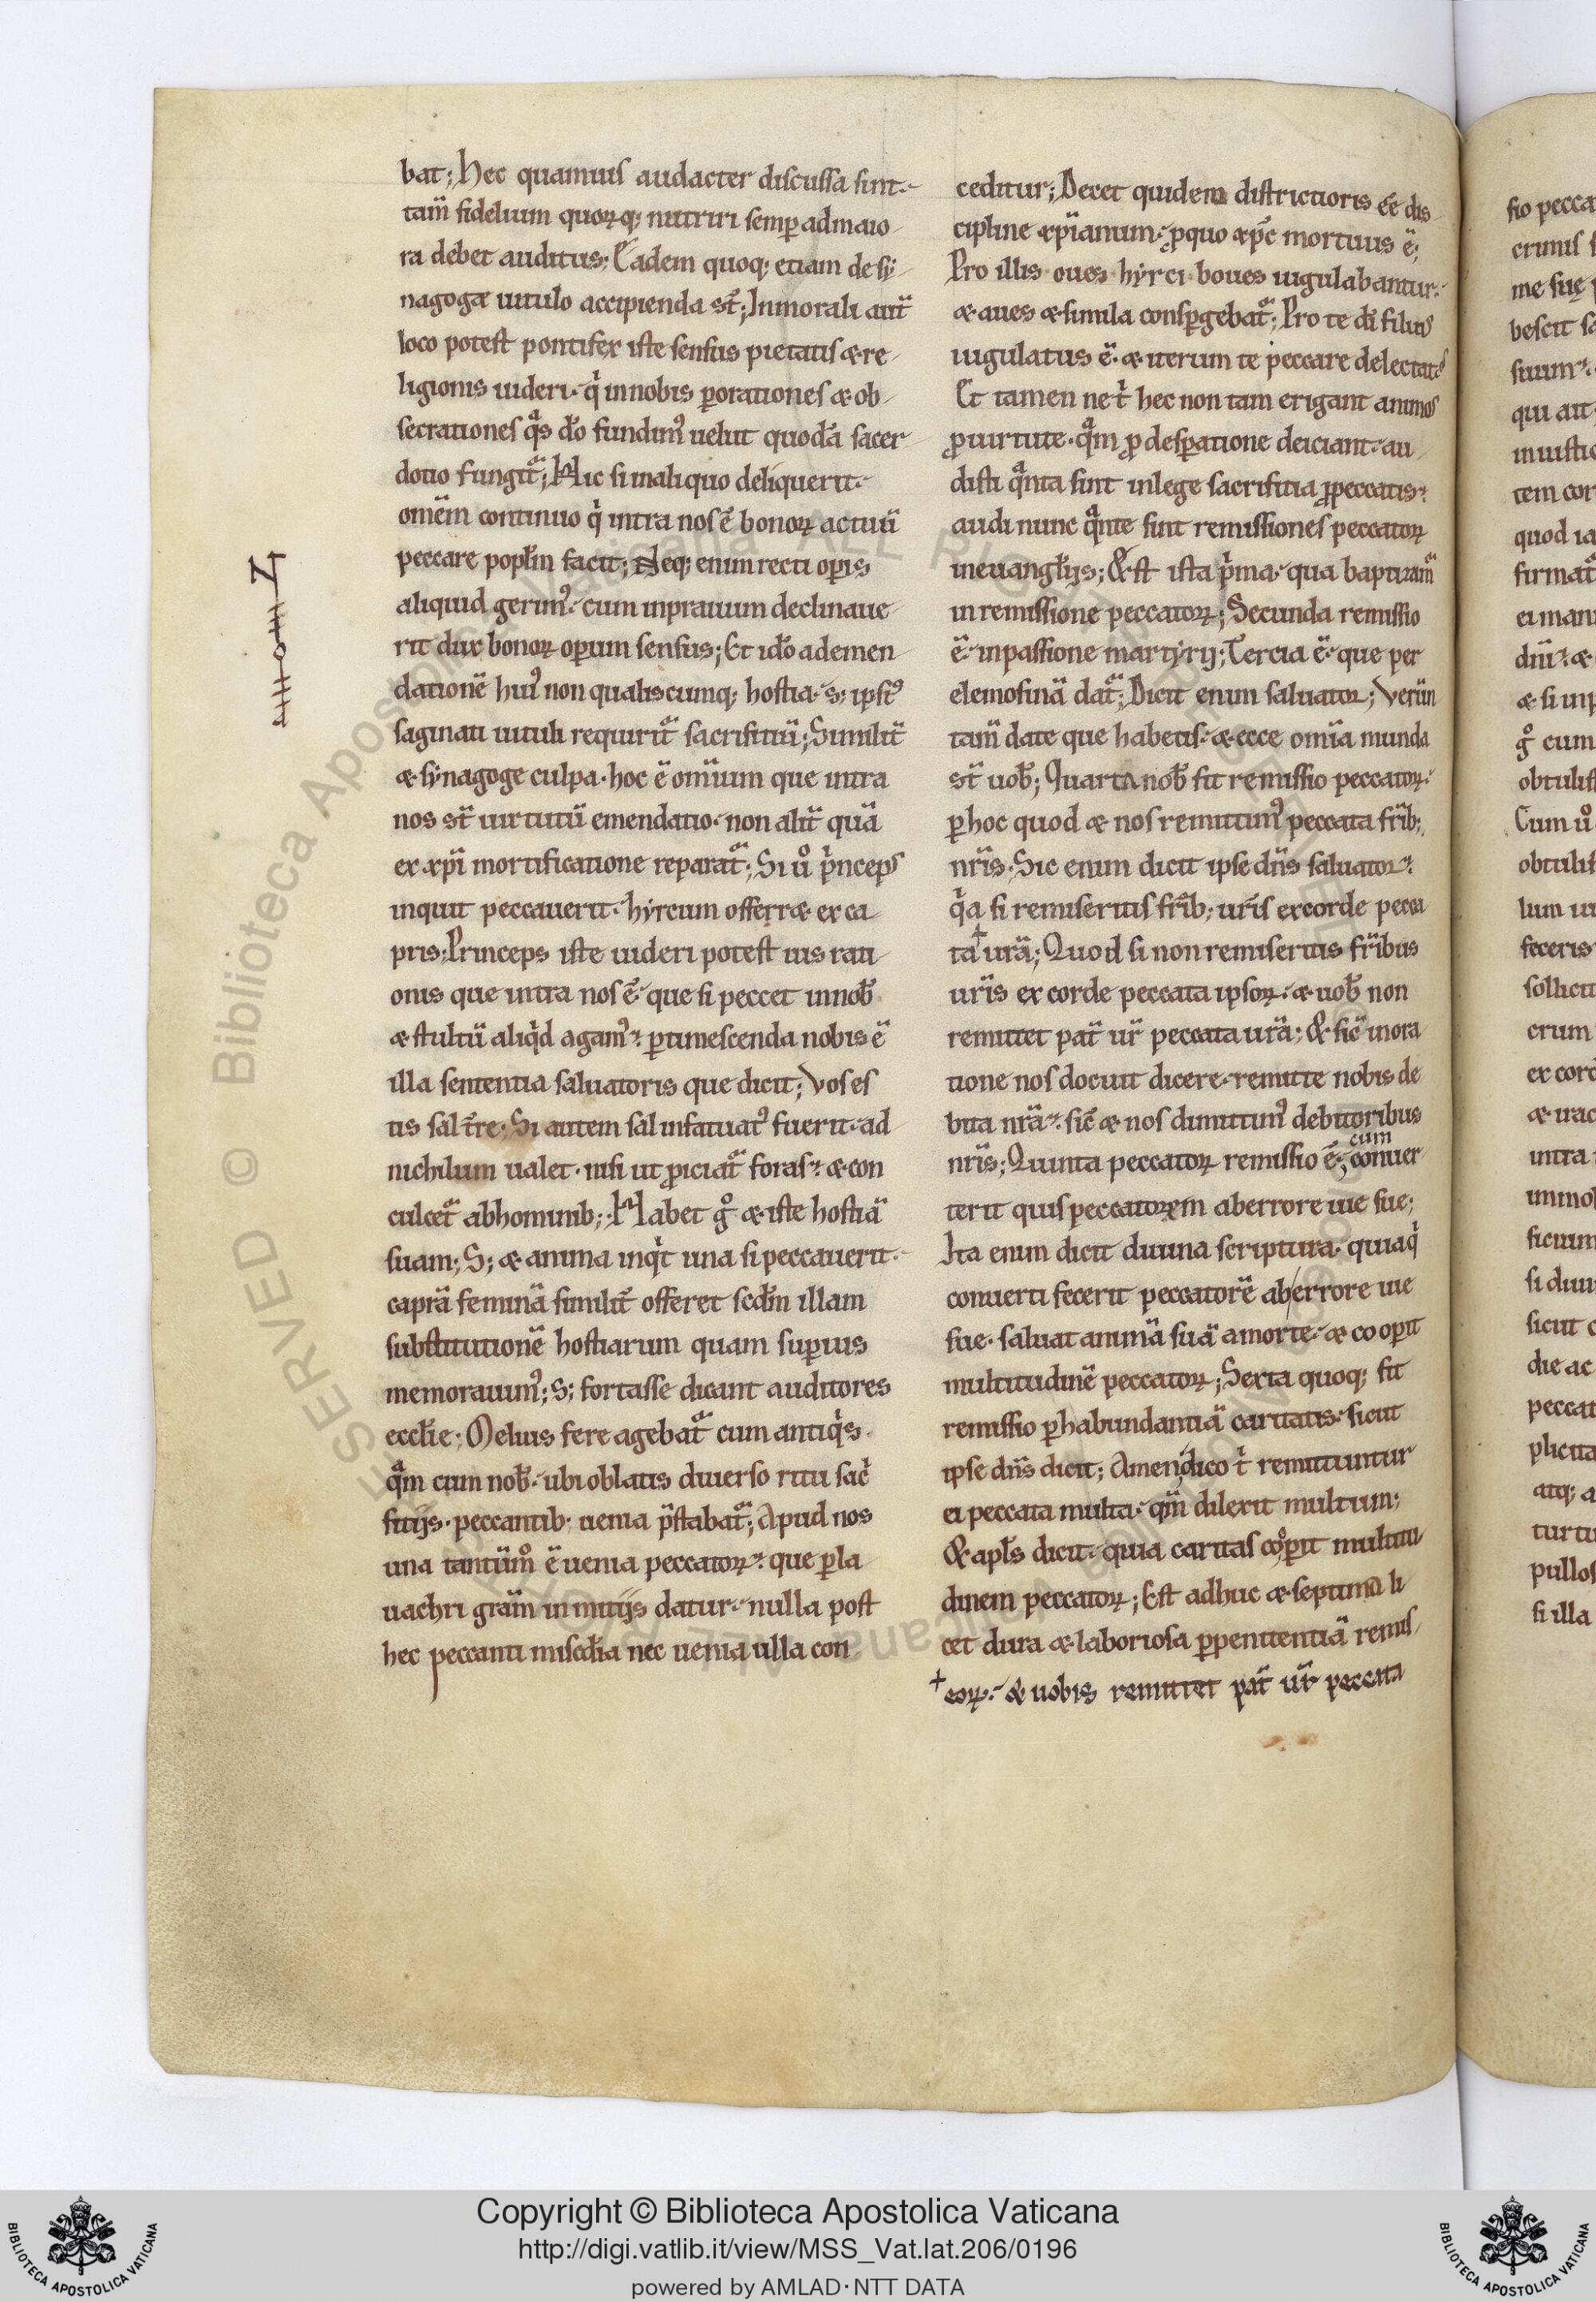 bat; Hec quamuis audacter discussa sint.
tam̃ fidelium quorꝝ q; nutriri semꝑ ad maio
ra debet auditus; Eadem quoq; etiam de sy
nagogæ uitulo accipienda st̃; In morali aut̃
loco potest pontifex iste sensus pietatis & re
ligionis uideri. qͥ in nobis ꝑ orationes & ob
secrationes qᷓs do fundimꝰ uelut quodã sacer
dotio fungit᷑; Hic si in aliquo deliquerit.
om̃em continuo qͥ intra nos ẽ bonoꝝ actuũ
peccare popl̃m facit; Neq; enim recti oꝑis
aliquid gerimꝰ. cum in prauum declinaue
rit dux bonoꝝ oꝑum sensus; Et ido ad emen
dationẽ huiꝰ non qualiscumq; hostia. s; ipsiꝰ
saginati uituli requirit᷑ sacrifitiũ; Similit̃
& synagoge culpa. hoc ẽ om̃ium que intra
nos st̃ uirtutũ emendatio. non alit̃ quã
ex xp̃i mortificatione reparat᷑; Si uͦ pͥnceps
inquit peccauerit. hyrcum offerræ ex ca
pris; Princeps iste uideri potest uis rati
onis que intra nos ẽ. que si peccet in nob̃
& stultũ aliqͥd agamꝰ. ꝑtimescenda nobis ẽ
illa sententia saluatoris que dicit; Vos es
tis sal tr̃e; Si autem sal infatuatꝰ fuerit. ad
nichilum ualet. nisi ut ꝓiciat᷑ foras. & con
culcet᷑ ab hominib; Habet gͦ & iste hostiã
suam; S; & anima inqͥt una si peccauerit.
caprã feminã similit̃ offeret scdm̃ illam
substitutionẽ hostiarum quam suꝑius
memorauimꝰ; s; fortasse dicant auditores
eccl̃ie; Melius fere agebat᷑ cum antiqͥs.
qᷓm cum nob̃. ubi oblatis diuerso ritu sacͥ
fitijs. peccantib; uenia p̃stabat᷑; Apud nos
una tantũmͦ ẽ uenia peccatoꝝ. que ꝑ la
uachri gram̃ in initijs datur. nulla post
hec peccanti misc̃dia nec uenia ulla con
ceditur; Decet quidem districtioris ẽe dis
cipline xp̃ianum. ꝓ quo xp̃c mortuus ẽ;
Pro illis oues hyrci boues iugulabantur.
& aues & simila consꝑgebat᷑; Pro te dĩ filius
iugulatus ẽ. & iterum te peccare delectat᷑
Et tamen ne t̾ hec non tam erigant animos
ꝓ uirtute. qᷓm ꝓ desꝑatione deiciant. au
disti qᷓnta sint in lege sacrifitia ꝓ peccatis.
audi nunc qᷓnte sint remissiones peccatoꝝ
in euangl̃ijs; & st ista pͥma. qua baptizam᷑
in remissione peccatoꝝ; Secunda remissio
ẽ. in passione martyrij; Tercia ẽ. que per
elemosinã dat᷑; Dicit enim saluator; Verũn
tam̃ date que habetis. & ecce om̃ia munda
st̃ uob̃; Quarta nob̃ fit remissio peccatoꝝ.
ꝑ hoc quod & nos remittimꝰ peccata fr̃ib;
nr̃is. Sic enim dicit ipse dñs saluator.
qͥa si remiseritis fr̃ib; ur̃is ex corde pecca
ta + ur̃a; Quod si non remiseritis fr̃ibus
ur̃is ex corde peccata ipsoꝝ. & uob̃ non
remittet pat̃ ur̃ peccata ur̃a; & sic̃ in ora
tione nos docuit dicere. remitte nobis de
bita nr̃a. sic̃ & nos dimittimꝰ debitoribus
cum
nr̃is; Quinta peccatoꝝ remissio ẽ; conuer
terit quis peccatorem ab errore uie sue;
Ita enim dicit diuina scriptura. quia qͥ
conuerti fecerit peccatorẽ ab errore uie
sue. saluat animã suã a morte. & co oꝑit
multitudinẽ peccatoꝝ; Sexta quoq; fit
remissio ꝑ habundantiã caritatis. sicut
ipse dñs dicit; Amen dico tͥ remittuntur
ei peccata multa. qm̃ dilexit multum;
& apl̃s dicit. quia caritas coͦꝑit multitu
dinem peccatoꝝ; Est adhuc & septima li
cet dura & laboriosa ꝑ penitentiã remis
+ eoꝝ. & uobis remittet pat̃ ur̃ peccata
Copyright © Biblioteca Apostolica Vaticana
http://digi.vatlib.it/view/MSS_Vat.lat.206/0196
powered by AMLAD·NTT DATA